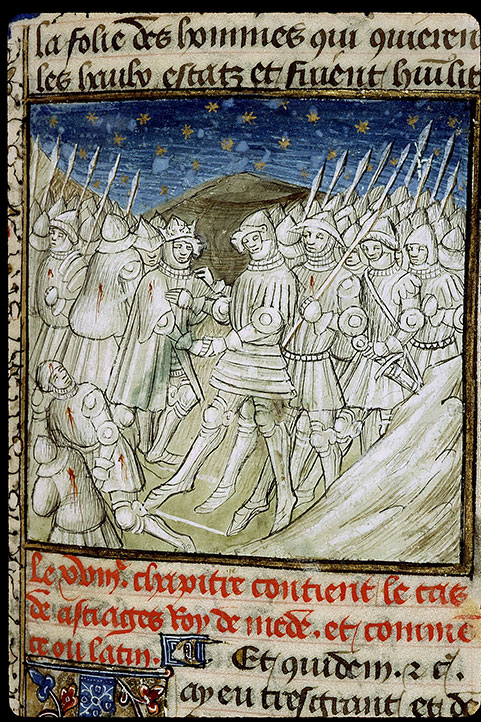 la folie des hommes qui quieren
les haulx estatz et fuient humilit
Le xviii.e chapitre contient le cas
de astiages Roy de mede. et comme
ce ou latin.
Et quidem. ⁊ cͣ.
ay eu tresgrant et de